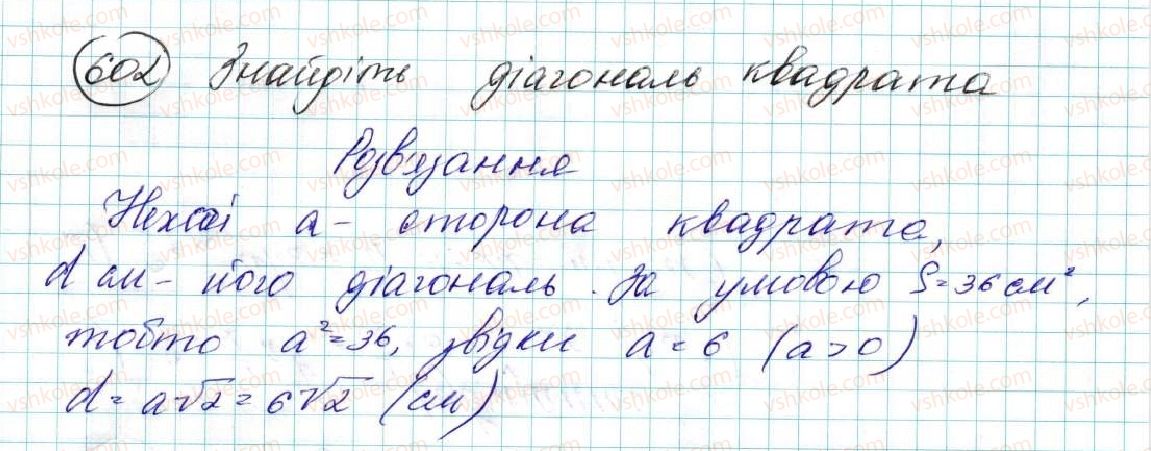 602 Знайдіть діагональ квадрата
Розв'язання
Нехай a - сторона квадрата,
d см - його діагональ. За умовою S = 36 см²,
тобто a² = 36, звідки a = 6 (a > 0)
d = a√2 = 6√2 (см)